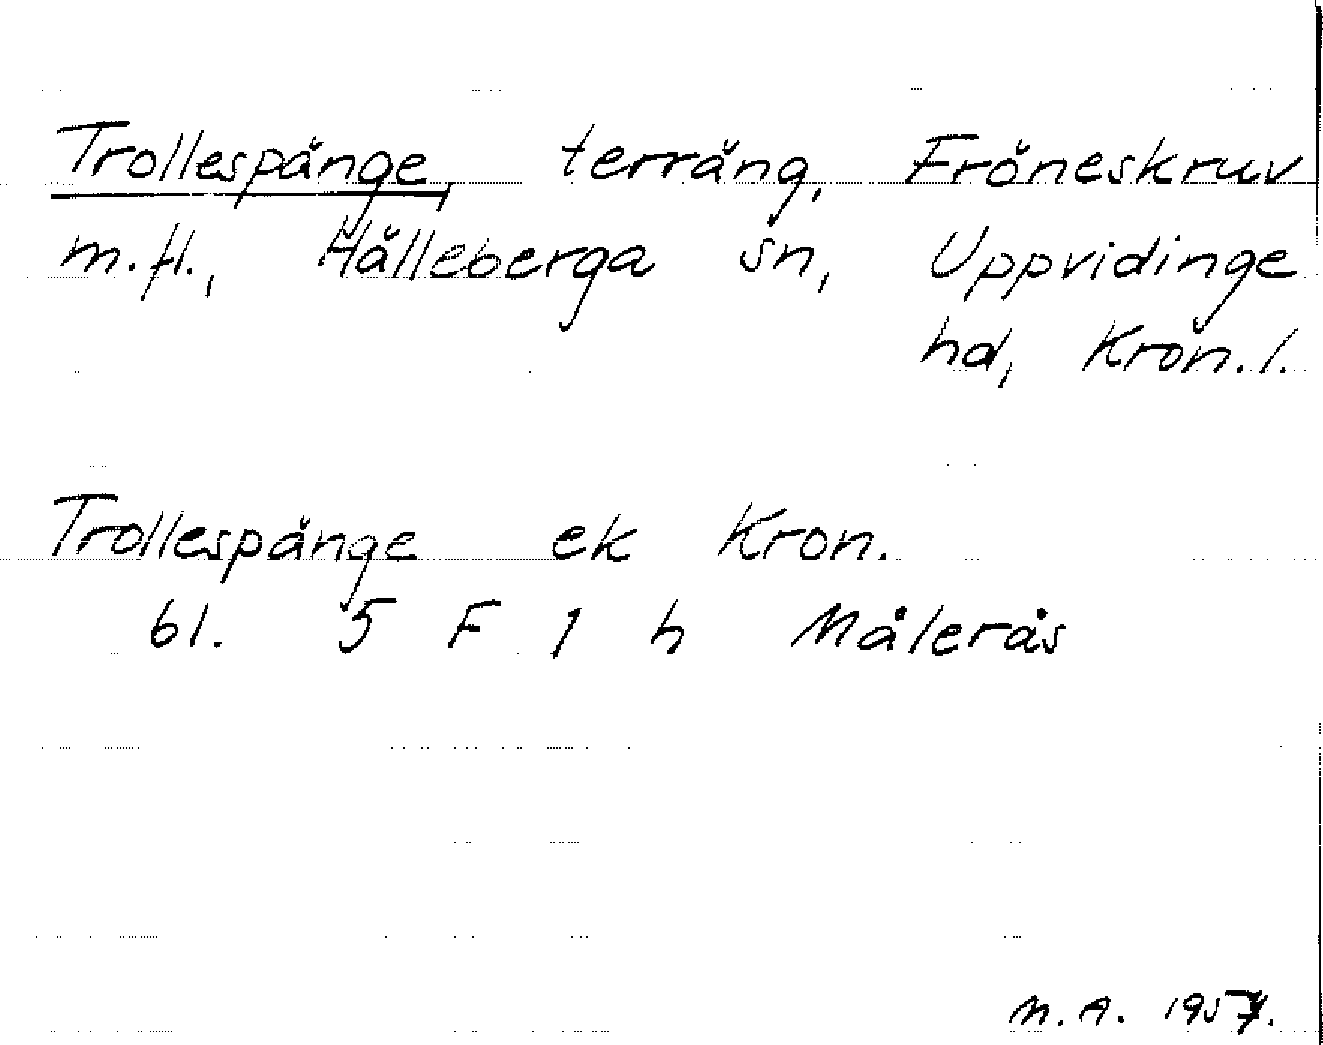 Trollespänge, terräng, Fröneskruv
m.fl., Hälleberga sn, Uppvidinge
hd, Kron.l.
Trollespänge ek Kron.
bl. 5 F 1 h Målerås
M.A. 1957.